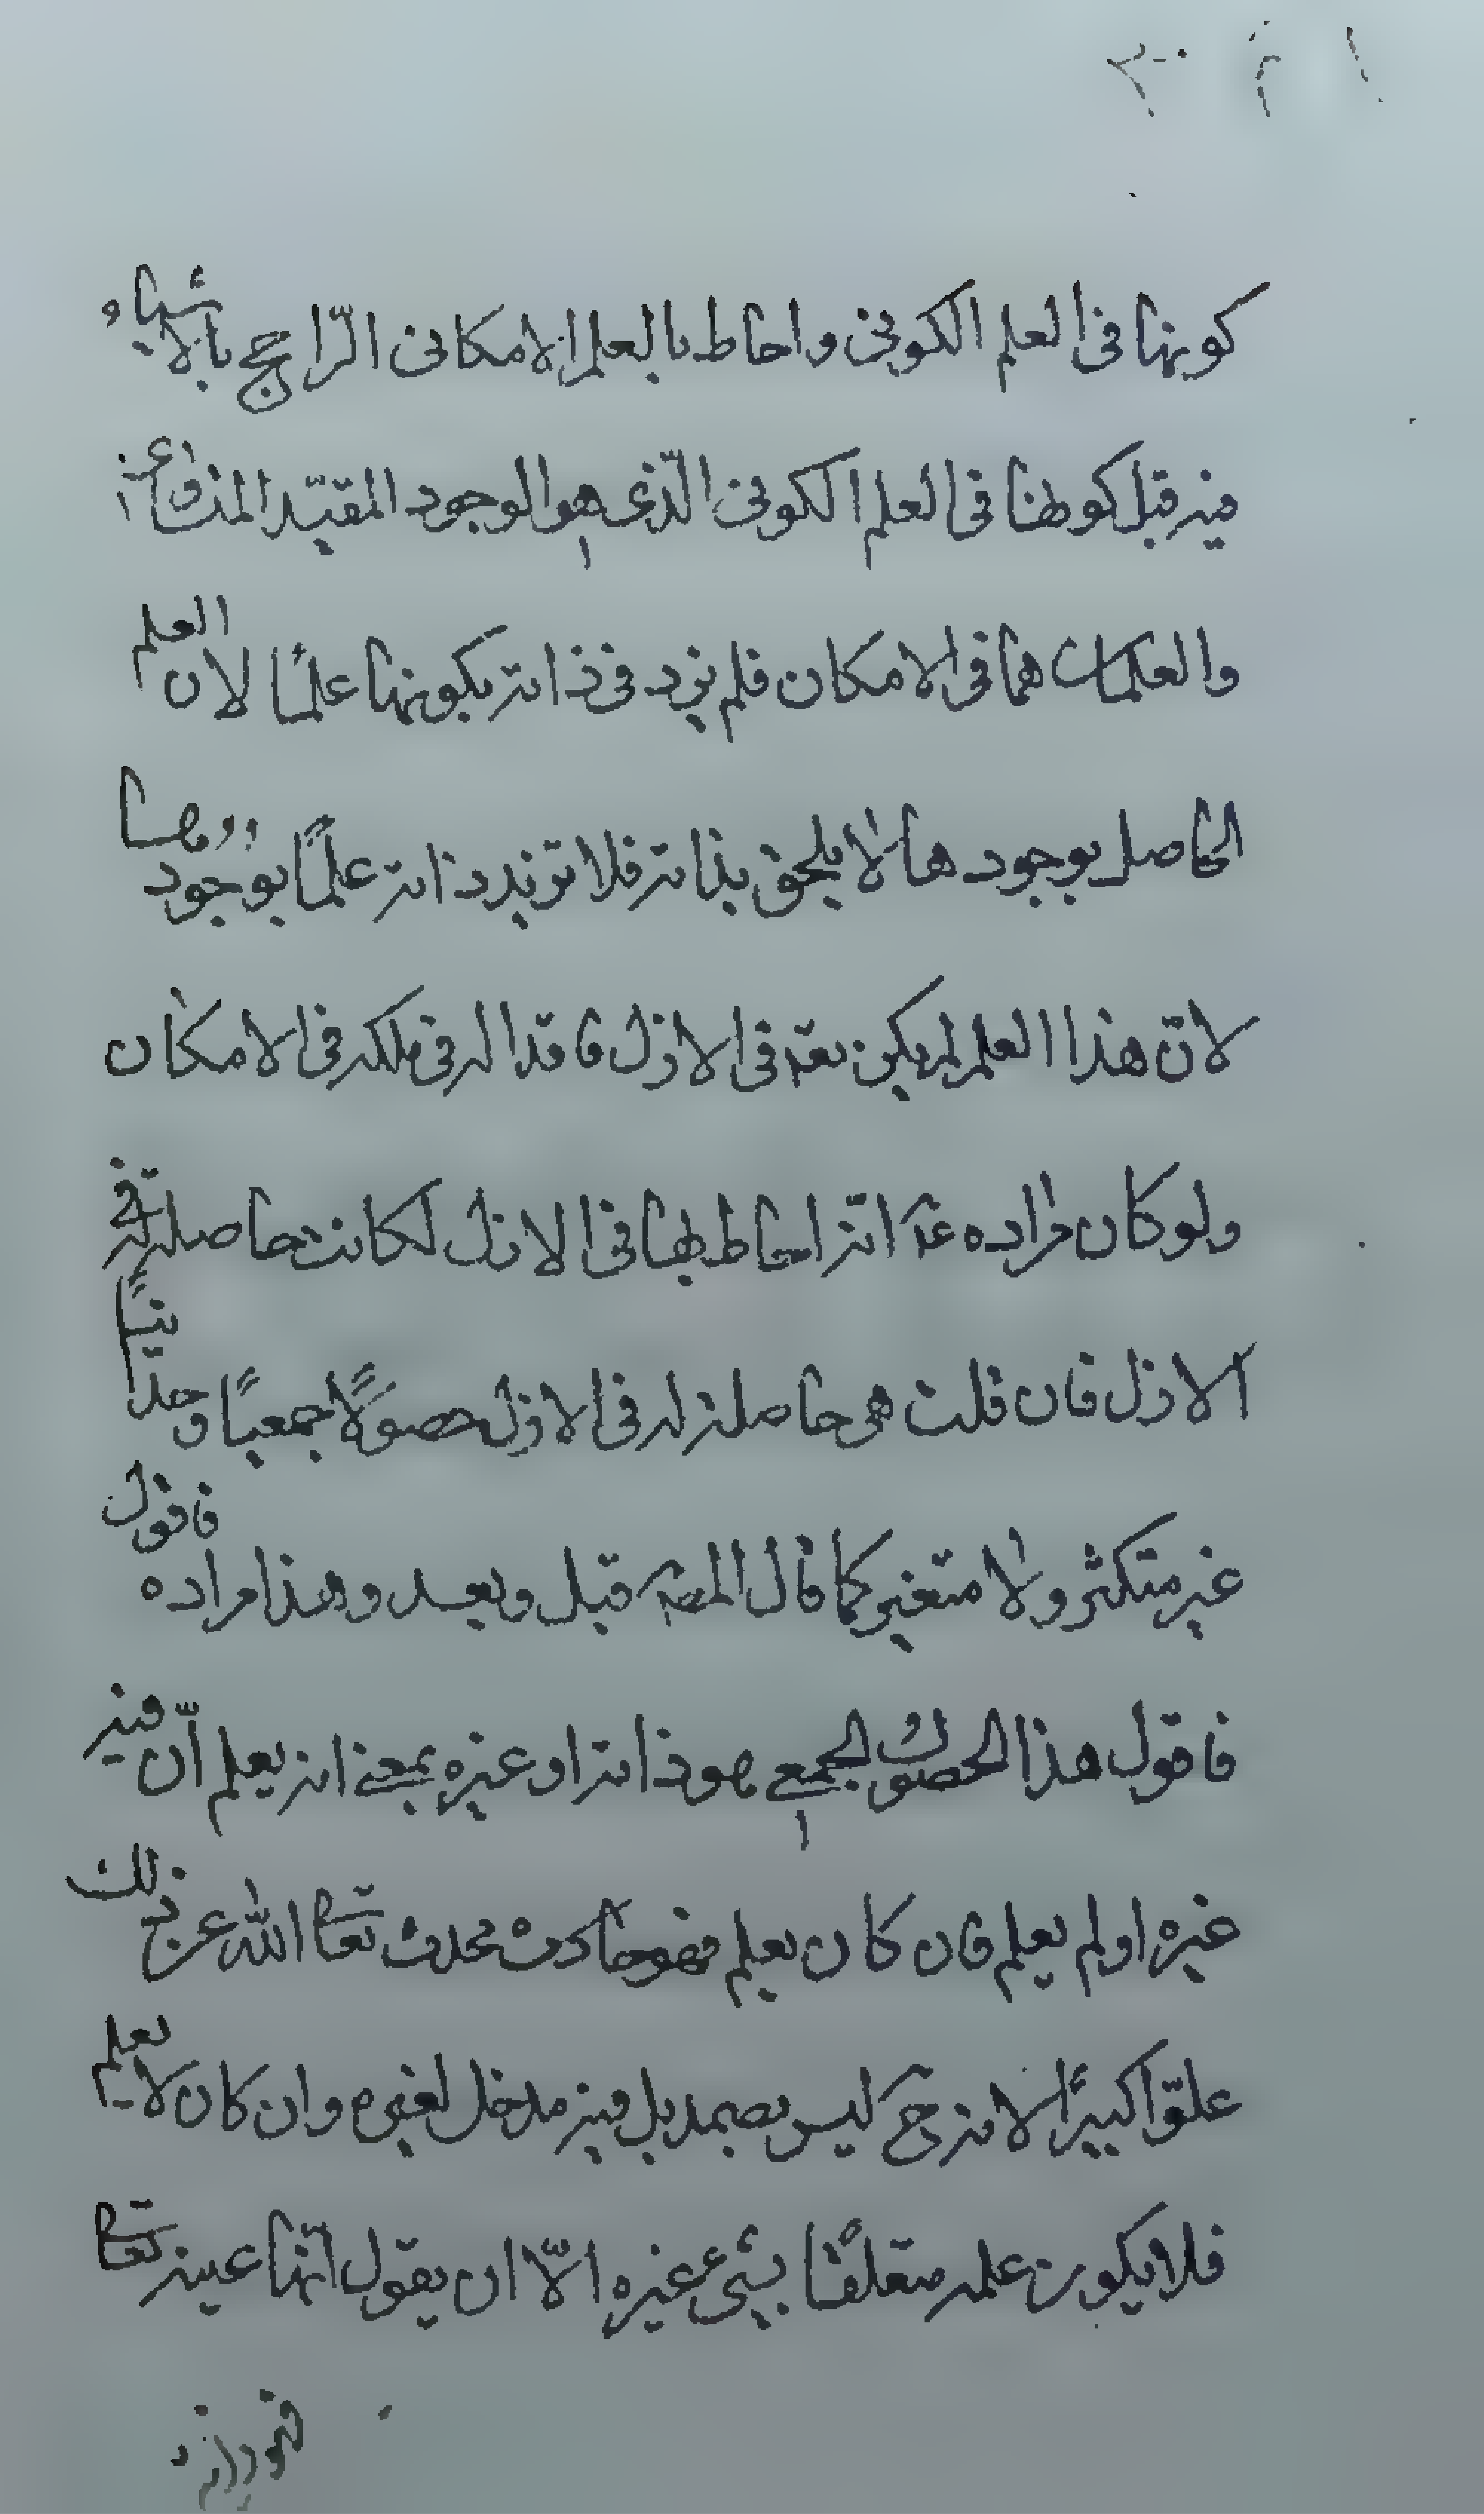 كونها فى العلم الكونى واحاط بالعلم الامكانى الرّاجح بالاشياء
فيه قبل كونها فى العلم الكونى الّذى هو الوجود المقيّد
والعلمان هما فى الامكان فلم يزد فى ذاته بكونها علمًا لان العلم
الحاصل بوجودها لا يلحق بذاته فلا تزيد ذاته علمًا بوجودها
لانّ هذا العلم لم يكن تعه فى الازل فاقدا له فى ملكه فى الامكان
ولو كان مراده عه انّه احاط بها فى الازل لكانت حاصلة له فى
الازل فان قلت هى حاصلة له فى الازل حصولًا جمعيًا وحدانيًا
غير متكثر ولا متغير كما قال المصه قبل وبعد وهذا مراده فاقول
فاقول هذا الحصول الجمعى هو ذاته او غيره بمعنى انه يعلم انّ فيه
غيره او لم يعلم فان كان يعلم فهو حادث محدث تعالى الله عن ذلك
علوّا كبيرًا لانه ح ليس بصمد بل فيه مدخل لغيره وان كان لا يعلم
فلا يكون علمه متعلقًا بشىء غيره الّا ان يقول انّها عينه تعالى